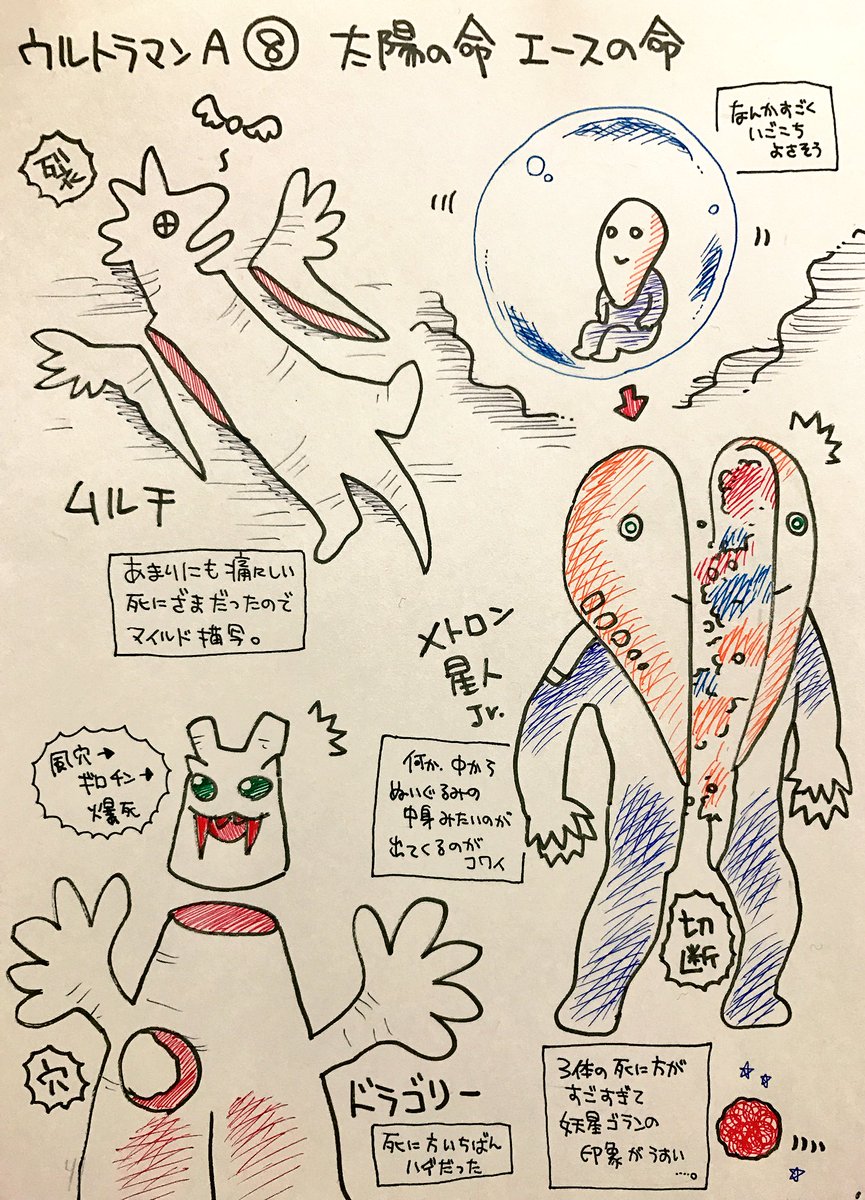 ウルトラマンA ⑧ 太陽の命 エースの命
なんかすごく
いごこち
よさそう
裂
ムルチ
あまりにも痛にしい
死にざまだったので
マイルド描写。
メトロン
星人
Jr.
何か、中から
ぬいぐるみの
中身みたいのが
出てくるのが
コワイ
風穴→
ギロチン→
爆死
切
断
穴
ドラゴリー
死に方いちばん
ハデだった
3体の死に方が
すごすぎて
妖星ゴランの
印象がうすい
……。